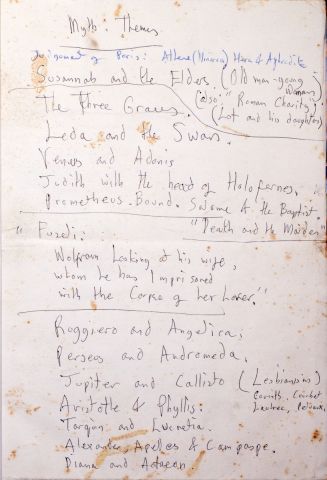 Myth. Themes
Judgement of Paris: Athena (Minerva) Hera & Aphrodite
Susannah and the Elders (Old man - young woman)
(also "Roman Charity")
The Three Graces.
(Lot and his daughters)
Leda and the Swan.
Venus and Adonis
Judith with the head of Holofernes.
Prometheus Bound. Salome & the Baptist.
"Death and the Maiden"
"Fuseli:
Wolfram Looking at his wife,
whom he has Imprisoned
with the Corpse of her Lover."
Roggiero and Angelica;
Perseus and Andromeda.
Jupiter and Callisto (Lesbianism)
Corinth, Courbet
Aristotle & Phyllis.
Lautrec,
Tarquin and Lucretia.
Alexander, Apelles & Campaspe.
Diana and Actaeon